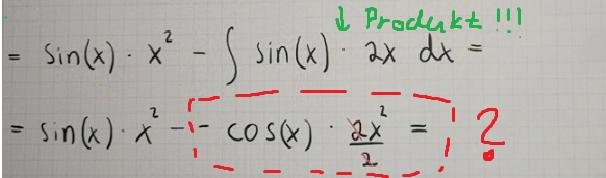 ↓ Produkt !!!
= sin(x) · x² - ∫ sin(x) · 2x dx =
= sin(x) · x² - - cos(x) · 2x²/2 = ?